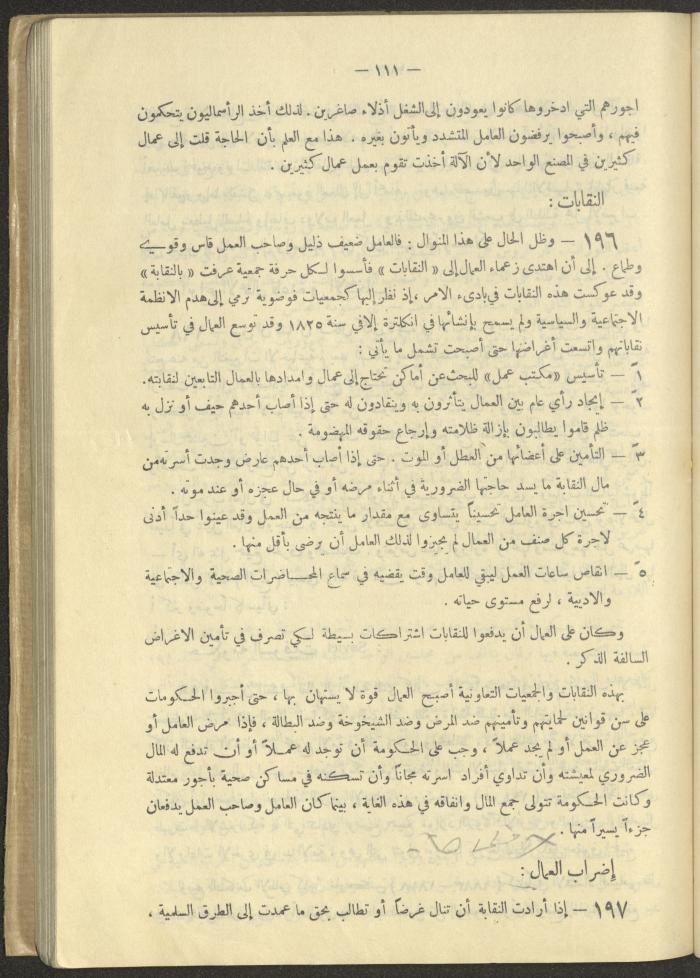 — ١١١ —
اجورهم التي ادخروها كانوا يعودون إلى الشغل أذلاء صاغرين . لذلك أخذ الرأسماليون يتحكمون
فيهم ، وأصبحوا يرفضون العامل المتشدد ويأتون بغيره . هذا مع العلم بأن الحاجة قلت إلى عمال
كثيرين في المصنع الواحد لأن الآلة أخذت تقوم بعمل عمال كثيرين .
النقابات :
١٩٦ — وظل الحال على هذا المنوال : فالعامل ضعيف ذليل وصاحب العمل قاس وقوي
وطماع . إلى أن اهتدى زعماء العمال إلى « النقابات » فأسسوا لكل حرفة جمعية عرفت « بالنقابة »
وقد عوكست هذه النقابات في بادىء الامر ، إذ نظر إليها كجمعيات فوضوية ترمي إلى هدم الانظمة
الاجتماعية والسياسية ولم يسمح بإنشائها في انكلترة إلا في سنة ١٨٢٥ وقد توسع العمال في تأسيس
نقاباتهم واتسعت أغراضها حتى أصبحت تشمل ما يأتي :
١ — تأسيس «مكتب عمل» للبحث عن أماكن تحتاج إلى عمال وامدادها بالعمال التابعين لنقابته.
٢ — إيجاد رأي عام بين العمال يتأثرون به وينقادون له حتى إذا أصاب أحدهم حيف أو نزل به
ظلم قاموا يطالبون بإزالة ظلامته وإرجاع حقوقه المهضومة .
٣ — التأمين على أعضائها من العطل أو الموت . حتى إذا أصاب أحدهم عارض وجدت أسرته من
مال النقابة ما يسد حاجتها الضرورية في أثناء مرضه أو في حال عجزه أو عند موته .
٤ — تحسين اجرة العامل تحسيناً يتساوى مع مقدار ما ينتجه من العمل وقد عينوا حداً أدنى
لاجرة كل صنف من العمال لم يجيزوا لذلك العامل أن يرضى بأقل منها .
٥ — انقاص ساعات العمل ليبقى للعامل وقت يقضيه في سماع المحاضرات الصحية والاجتماعية
والادبية ، لرفع مستوى حياته .
وكان على العمال أن يدفعوا للنقابات اشتراكات بسيطة لكي تصرف في تأمين الاغراض
السالفة الذكر .
بهذه النقابات والجمعيات التعاونية أصبح العمال قوة لا يستهان بها ، حتى أجبروا الحكومات
على سن قوانين لحمايتهم وتأمينهم ضد المرض وضد الشيخوخة وضد البطالة ، فإذا مرض العامل أو
عجز عن العمل أو لم يجد عملاً ، وجب على الحكومة أن توجد له عملاً أو أن تدفع له المال
الضروري لمعيشته وأن تداوي أفراد اسرته مجاناً وأن تسكنه في مساكن صحية بأجور معتدلة
وكانت الحكومة تتولى جمع المال وانفاقه في هذه الغاية ، بينما كان العامل وصاحب العمل يدفعان
جزءاً يسيراً منها .
إضراب العمال :
١٩٧ — إذا أرادت النقابة أن تنال غرضاً أو تطالب بحق ما عمدت إلى الطرق السلمية ،